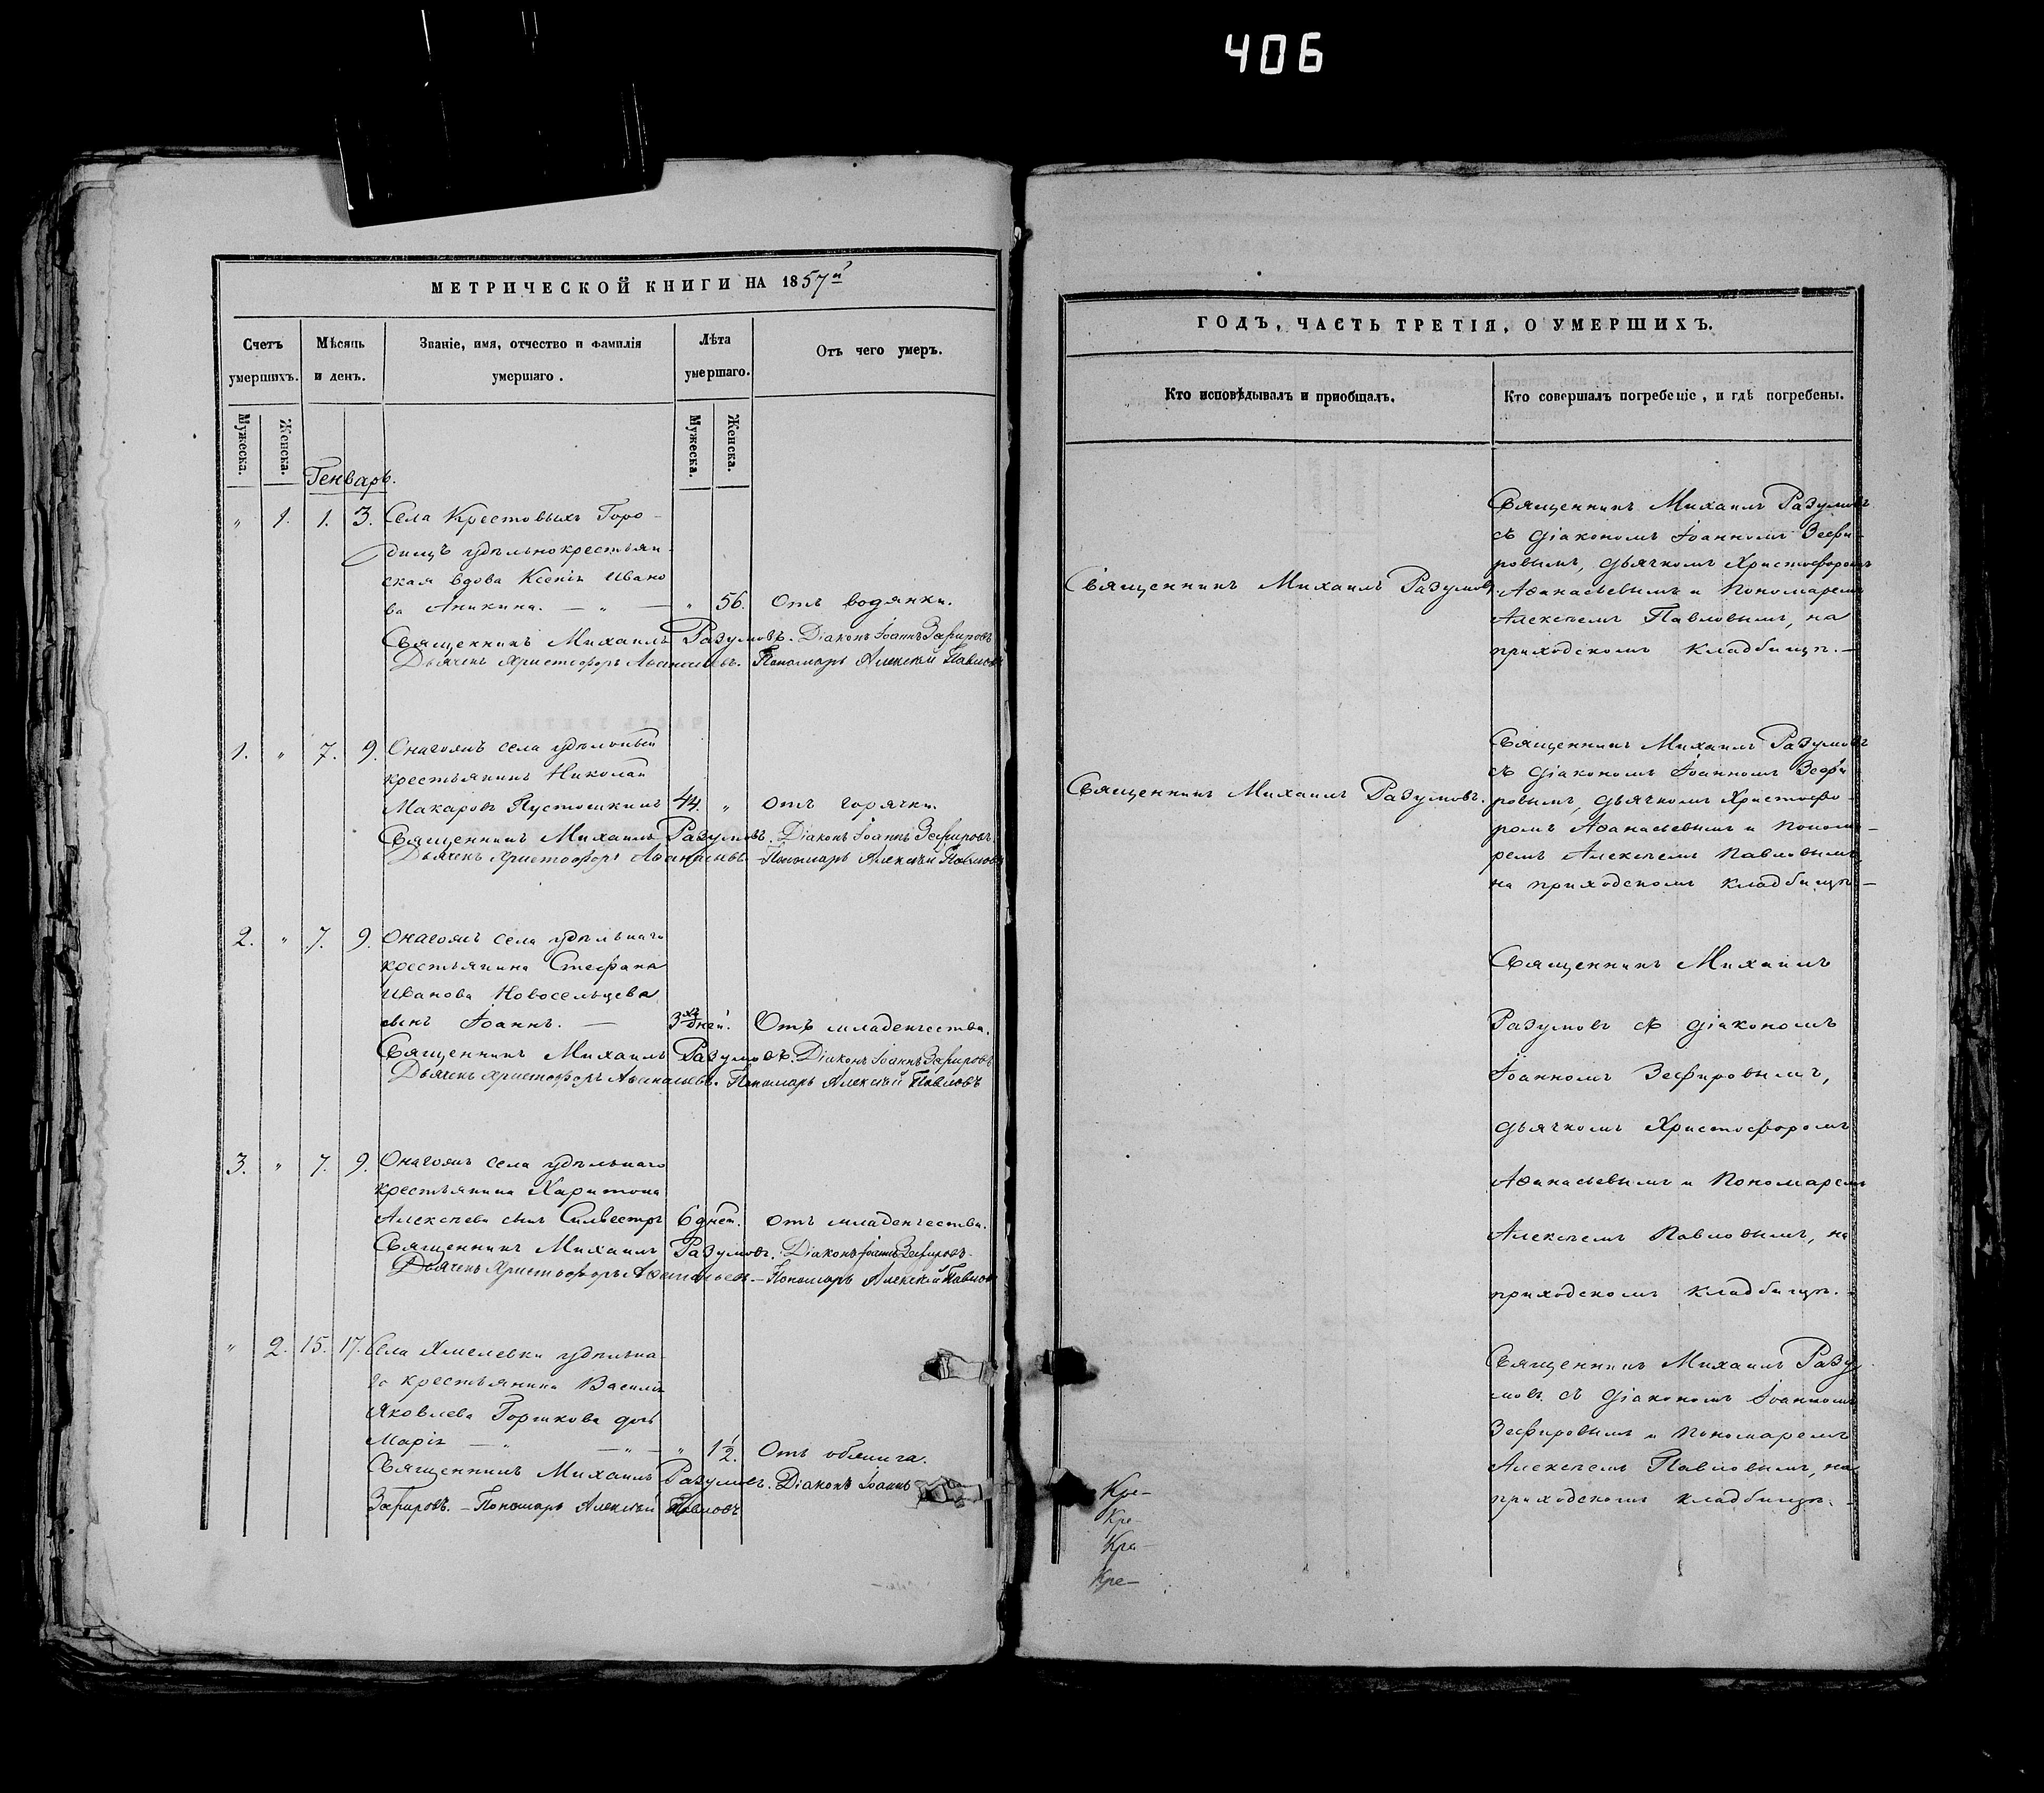 406
МЕТРИЧЕСКОЙ КНИГИ НА 1857й
Счетъ умершихъ.
Мѣсяцъ и день.
Званіе, имя, отчество и фамилія умершаго.
Лѣта умершаго.
Отъ чего умеръ.
Мужеска.
Женска.
Мужеска.
Женска.
Генварь.
" 1. 1. 3. Села Крестовыхъ Горо-
дищъ удѣльнокрестьян-
ская вдова Ксенія Ивано
ва Аникина. — " — " 56. Отъ водянки.
Священникъ Михаилъ Разумовъ. Діаконъ Іоаннъ Зефировъ
Дьячекъ Христофоръ Аѳанасьевъ. Пономарь Алексѣй Павловъ
1. " 7. 9. Онагожъ села удѣльный
крестьянинъ Николай
Макаровъ Пустошкинъ 44. " Отъ горячки.
Священникъ Михаилъ Разумовъ. Діаконъ Іоаннъ Зефировъ.
Дьячекъ Христофоръ Аѳанасьевъ. Пономарь Алексѣй Павловъ
2. " 7. 9. Онагожъ села удѣльнаго
крестьянина Стефана
Иванова Новосельцева
сынъ Іоаннъ. — 3хъ дней. Отъ младенчества.
Священникъ Михаилъ Разумовъ. Діаконъ Іоаннъ Зефировъ
Дьячекъ Христофоръ Аѳанасьевъ. Пономарь Алексѣй Павловъ
3. " 7. 9. Онагожъ села удѣльнаго
крестьянина Харитона
Алексѣева сынъ Сильвестръ 6 дней. Отъ младенчества.
Священникъ Михаилъ Разумовъ. Діаконъ Іоаннъ Зефировъ.
Дьячекъ Христофоръ Аѳанасьевъ. — Пономарь Алексѣй Павловъ
" 2. 15. 17. Села Хмелевки удѣльна-
го крестьянина Василія
Яковлева Горшкова дочь
Марія — " — " — " 1½. Отъ
Священникъ Михаилъ Разумовъ. Діаконъ Іоаннъ
Зефировъ. — Пономарь Алексѣй Павловъ
ГОДЪ, ЧАСТЬ ТРЕТІЯ, О УМЕРШИХЪ.
Кто исповѣдывалъ и пріобщалъ.
Кто совершалъ погребеніе, и гдѣ погребены.
Священникъ Михаилъ Разумовъ.
Священникъ Михаилъ Разумовъ
съ діакономъ Іоанномъ Зефи-
ровымъ, дьячкомъ Христофоромъ
Аѳанасьевымъ и пономаремъ
Алексѣемъ Павловымъ, на
приходскомъ кладбищѣ. —
Священникъ Михаилъ Разумовъ.
Священникъ Михаилъ Разумовъ
съ діакономъ Іоанномъ Зефи
ровымъ, дьячкомъ Христофо-
ромъ Аѳанасьевымъ и понома-
ремъ Алексѣемъ Павловымъ,
на приходскомъ кладбищѣ. —
Священникъ Михаилъ
Разумовъ съ діакономъ
Іоанномъ Зефировымъ,
дьячкомъ Христофоромъ
Аѳанасьевымъ и пономаремъ
Алексѣемъ Павловымъ, на
приходскомъ кладбищѣ. —
Священникъ Михаилъ Разу
мовъ съ діакономъ Іоанномъ
Зефировымъ и пономаремъ
Алексѣемъ Павловымъ, на
приходскомъ кладбищѣ. —
Кре-
Кре-
Кре-
Кре-